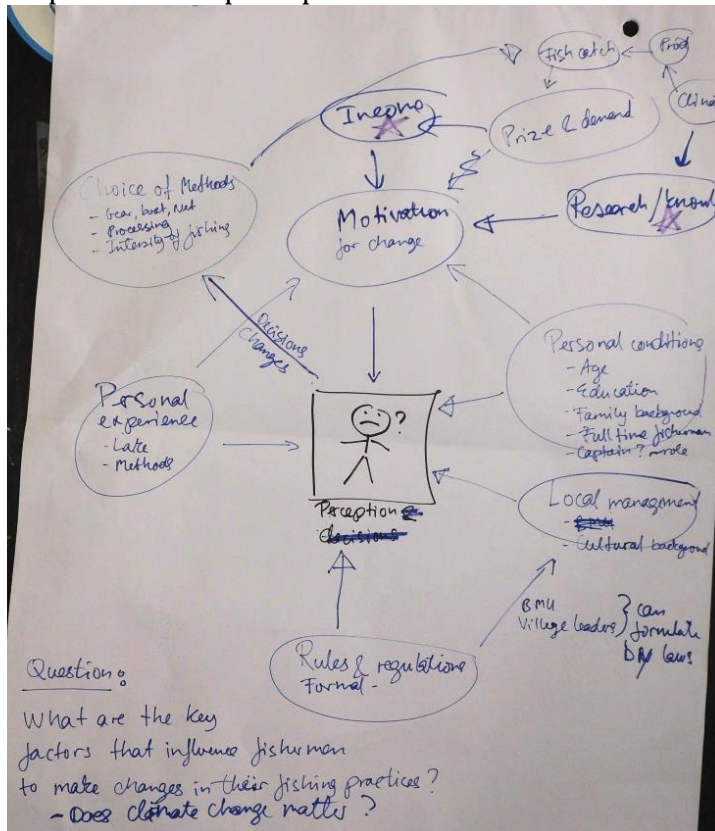 Fish catch
Prod
Clima
Income
Prize & demand
Choice of Methods
- Gear, boat, Net
- Processing
- Intensity of fishing
Motivation
for change
Research/knowl
Decisions
Changes
Personal conditions
- Age
- Education
- Family background
- Full time fisherman
- Captain? role
Personal
experience
- Lake
- Methods
?
Perception
decisions
Local management
- BMU
- Cultural background
BMU
Village leaders } can
formulate
by laws
Rules & regulations
Formal -
Question:
What are the key
factors that influence fishermen
to make changes in their fishing practices?
- Does climate change matter?